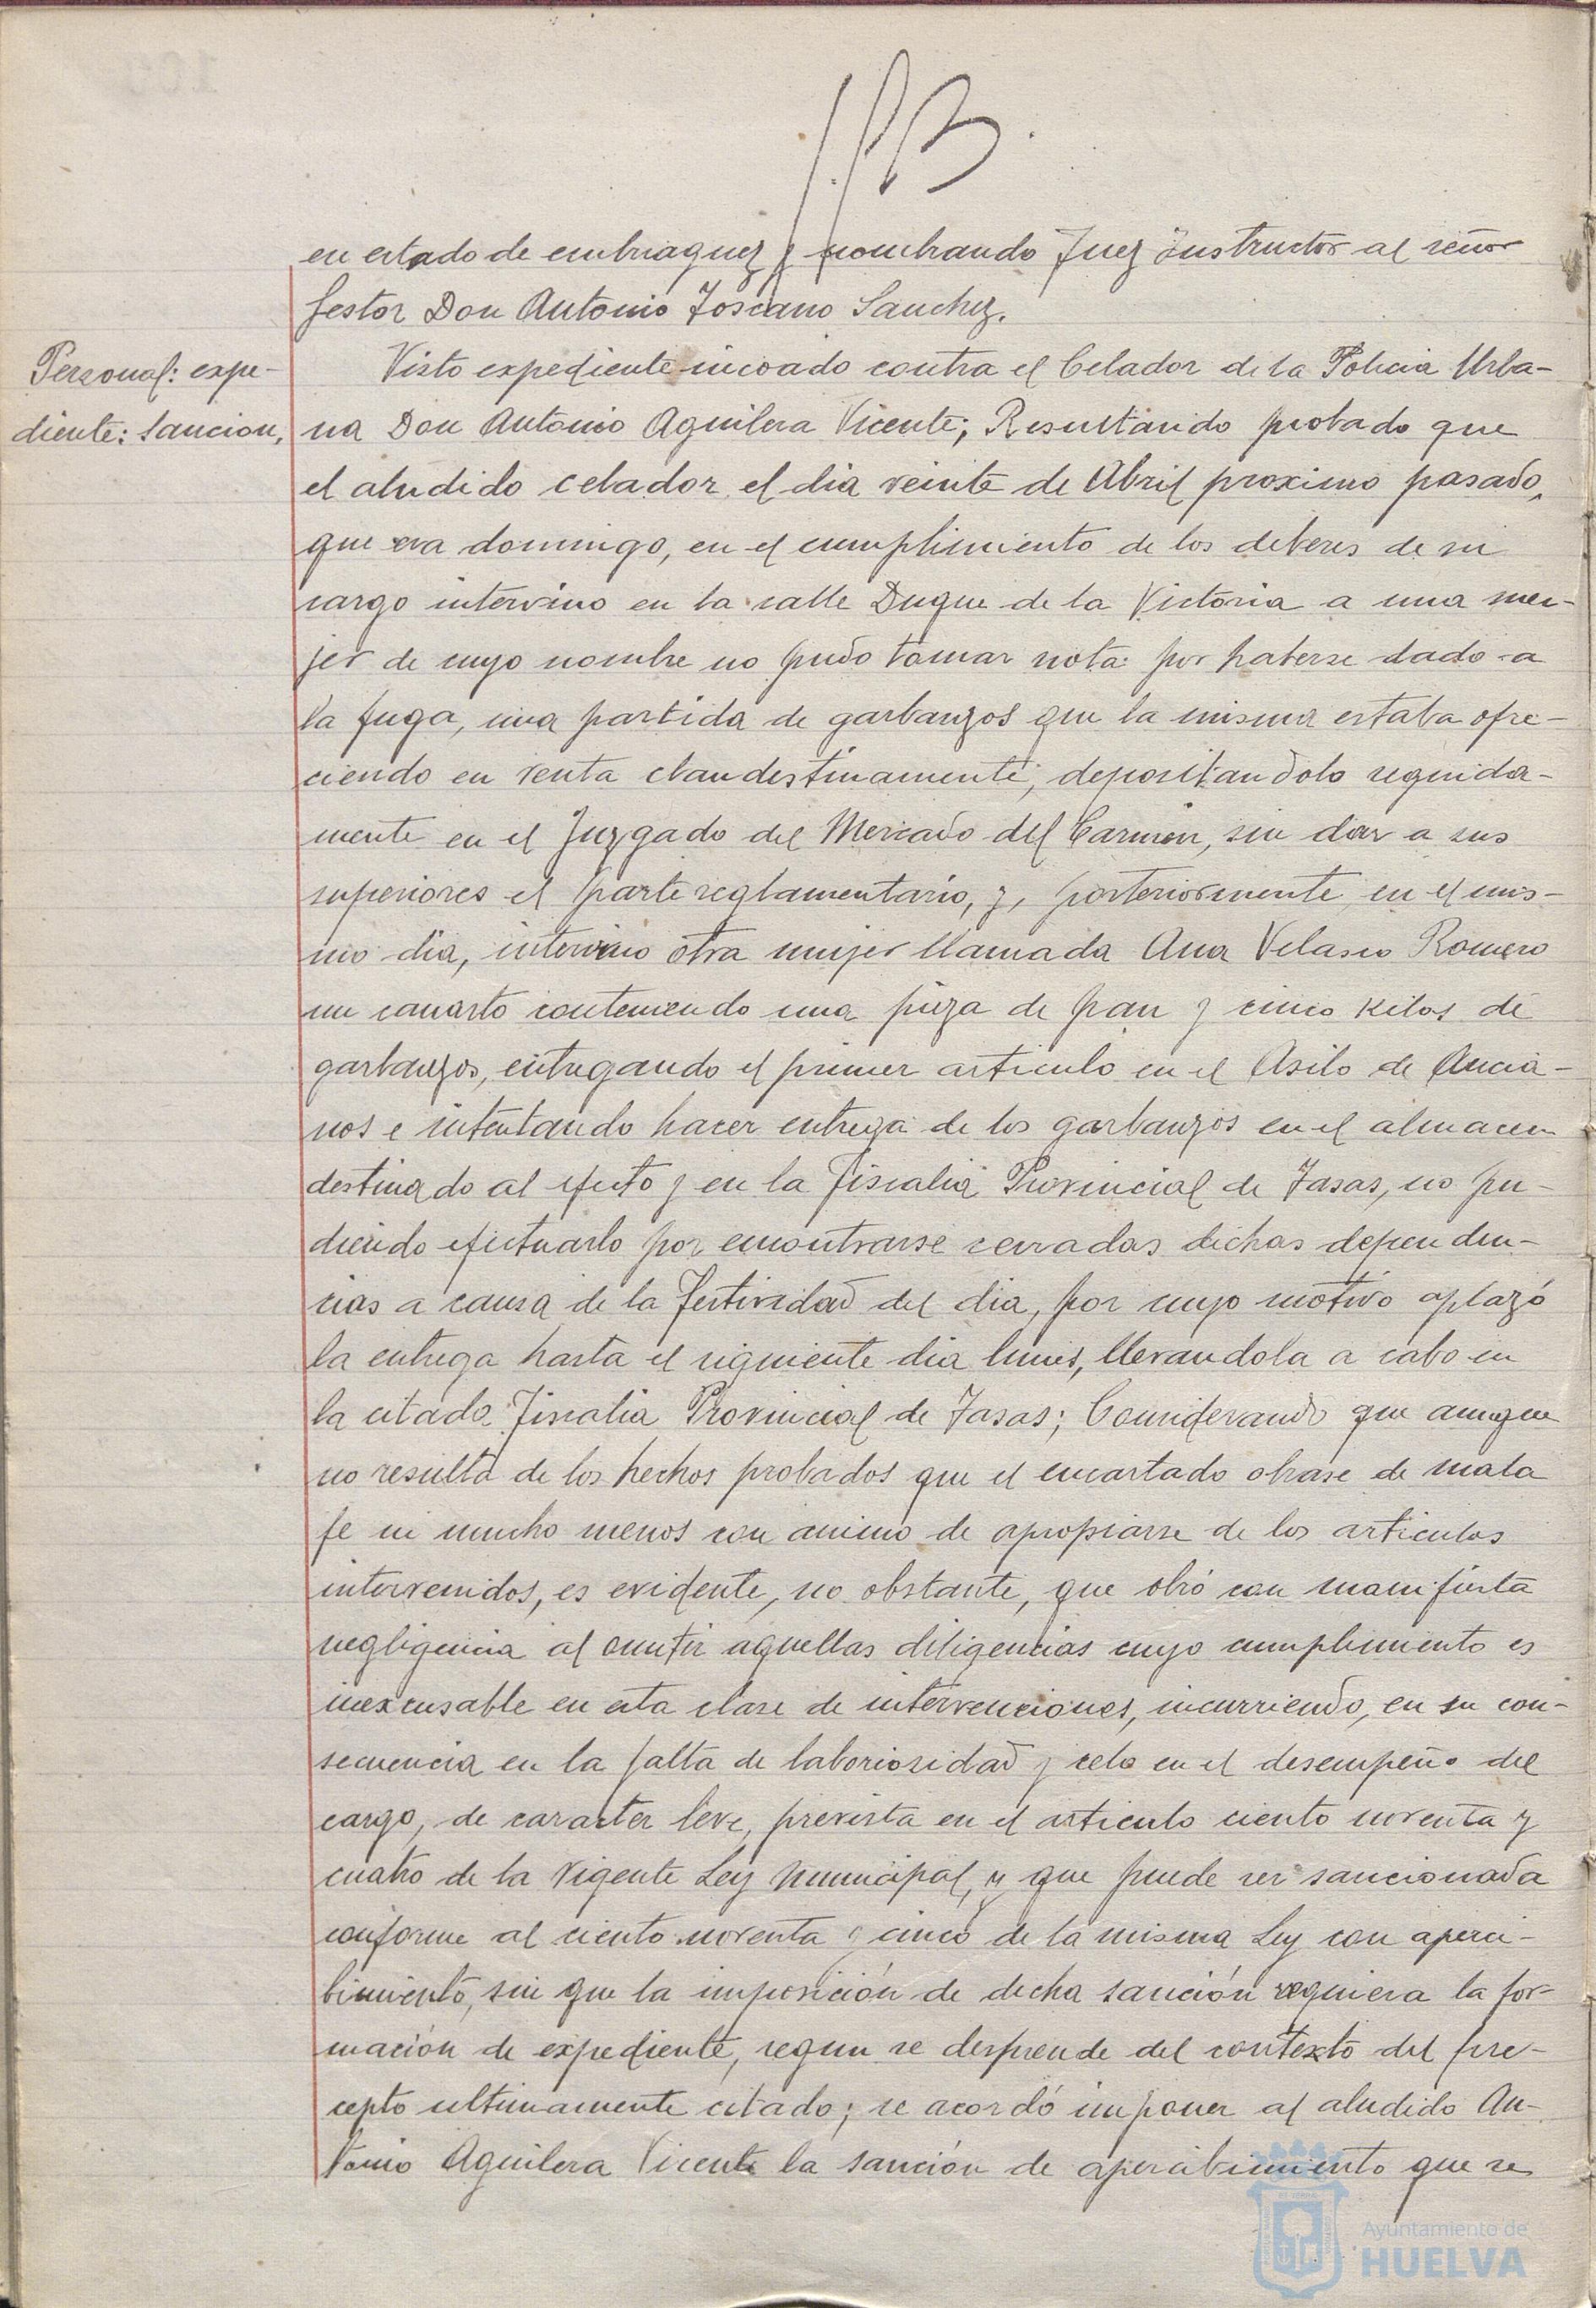 en estado de embriaguez y nombrando Juez Instructor al señor
Gestor Don Antonio Toscano Sanchez.
Personal: expe-
diente: Sancion,
Visto expediente incoado contra el Celador de la Policia Urba-
na Don Antonio Aguilera Vicente; Resultando probado que
el aludido celador el dia veinte de Abril proximo pasado,
que era domingo, en el cumplimiento de los deberes de su
cargo intervino en la calle Duque de la Victoria a una mu-
jer de cuyo nombre no pudo tomar nota por haberse dado a
la fuga, una partida de garbanzos que la misma estaba ofre-
ciendo en venta clandestinamente, depositandolo seguida-
mente en el Juzgado del Mercado del Carmen, sin dar a sus
superiores el parte reglamentario, y, posteriormente, en el mis-
mo dia, intervino otra mujer llamada Ana Velasco Romero
un canasto conteniendo una pieza de pan y cinco kilos de
garbanzos, entregando el primer articulo en el Asilo de Ancia-
nos e intentando hacer entrega de los garbanzos en el almacen
destinado al efecto y en la Fiscalia Provincial de Tasas, no pu-
diendo efectuarlo por encontrarse cerradas dichas dependen-
cias a causa de la festividad del dia, por cuyo motivo aplazó
la entrega hasta el siguiente dia lunes, llevandola a cabo en
la citada Fiscalia Provincial de Tasas; Considerando que aunque
no resulta de los hechos probados que el encartado obrase de mala
fe ni mucho menos con animo de apropiarse de los articulos
intervenidos, es evidente, no obstante, que obró con manifiesta
negligencia al omitir aquellas diligencias cuyo cumplimiento es
inexcusable en esta clase de intervenciones, incurriendo, en su con-
secuencia en la falta de laboriosidad y celo en el desempeño del
cargo, de caracter leve, prevista en el articulo ciento noventa y
cuatro de la vigente Ley Municipal, y que puede ser sancionada
conforme al ciento noventa y cinco de la misma Ley con aperci-
bimiento, sin que la imposición de dicha sanción requiera la for-
mación de expediente, segun se desprende del contexto del pre-
cepto ultimamente citado; se acordó imponer al aludido An-
tonio Aguilera Vicente la sanción de apercibimiento que se
Ayuntamiento de
HUELVA